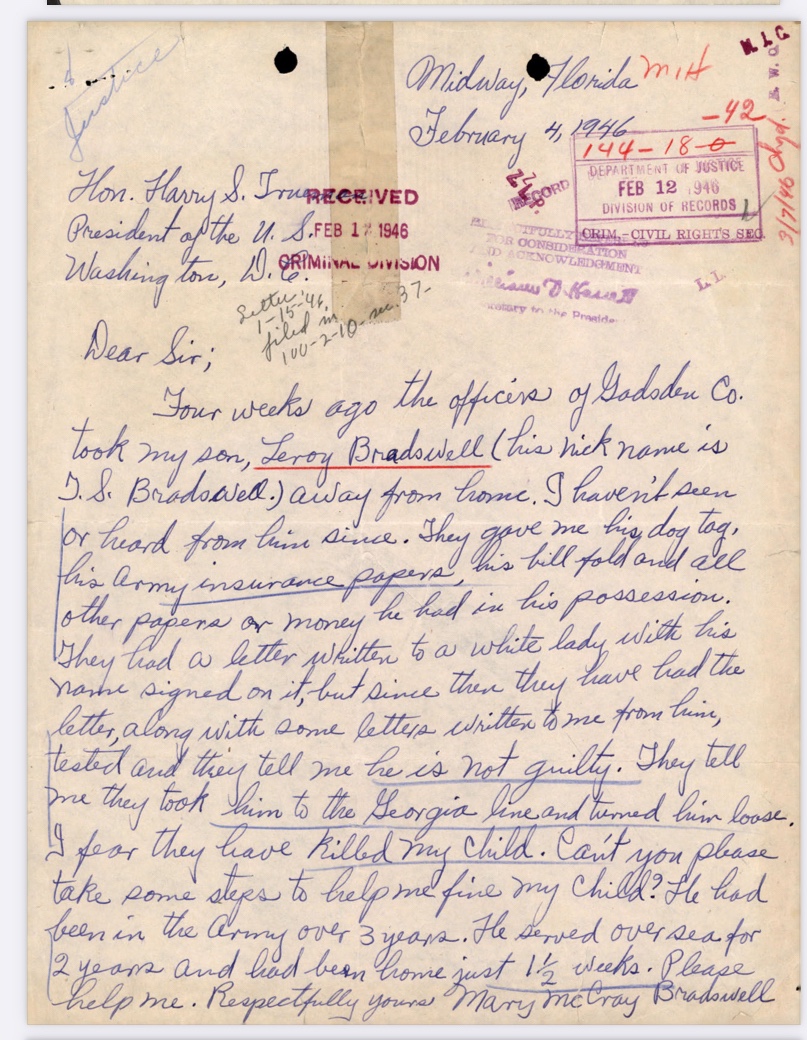 Justice
Midway, Florida
February 4, 1946
MIH
-42
144-18-0
DEPARTMENT OF JUSTICE
FEB 12 1946
DIVISION OF RECORDS
CRIM.-CIVIL RIGHTS SEC.
RECORD
3/7/46 Chgd.
Hon. Harry S. Tru
President of the U. S.
Washington, D. C.
RECEIVED
FEB 1 1946
CRIMINAL DIVISION
FOR CONSIDERATION
AND ACKNOWLEDGMENT
Secretary to the President
L. L.
Letter
1-15-46,
filed in
100-2-10-sec.37-
Dear Sir;
Four weeks ago the officers of Gadsden Co.
took my son, Leroy Bradswell (his nick name is
T.S. Bradswell.) away from home. I haven't seen
or heard from him since. They gave me his dog tag,
his Army insurance papers, his bill fold and all
other papers or money he had in his possession.
They had a letter written to a white lady with his
name signed on it, but since then they have had the
letter, along with some letters written to me from him,
tested and they tell me he is not guilty. They tell
me they took him to the Georgia line and turned him loose.
I fear they have killed my child. Can't you please
take some steps to help me fine my child? He had
been in the Army over 3 years. He served over sea for
2 years and had been home just 1½ weeks. Please
help me. Respectfully yours Mary McCray Bradswell